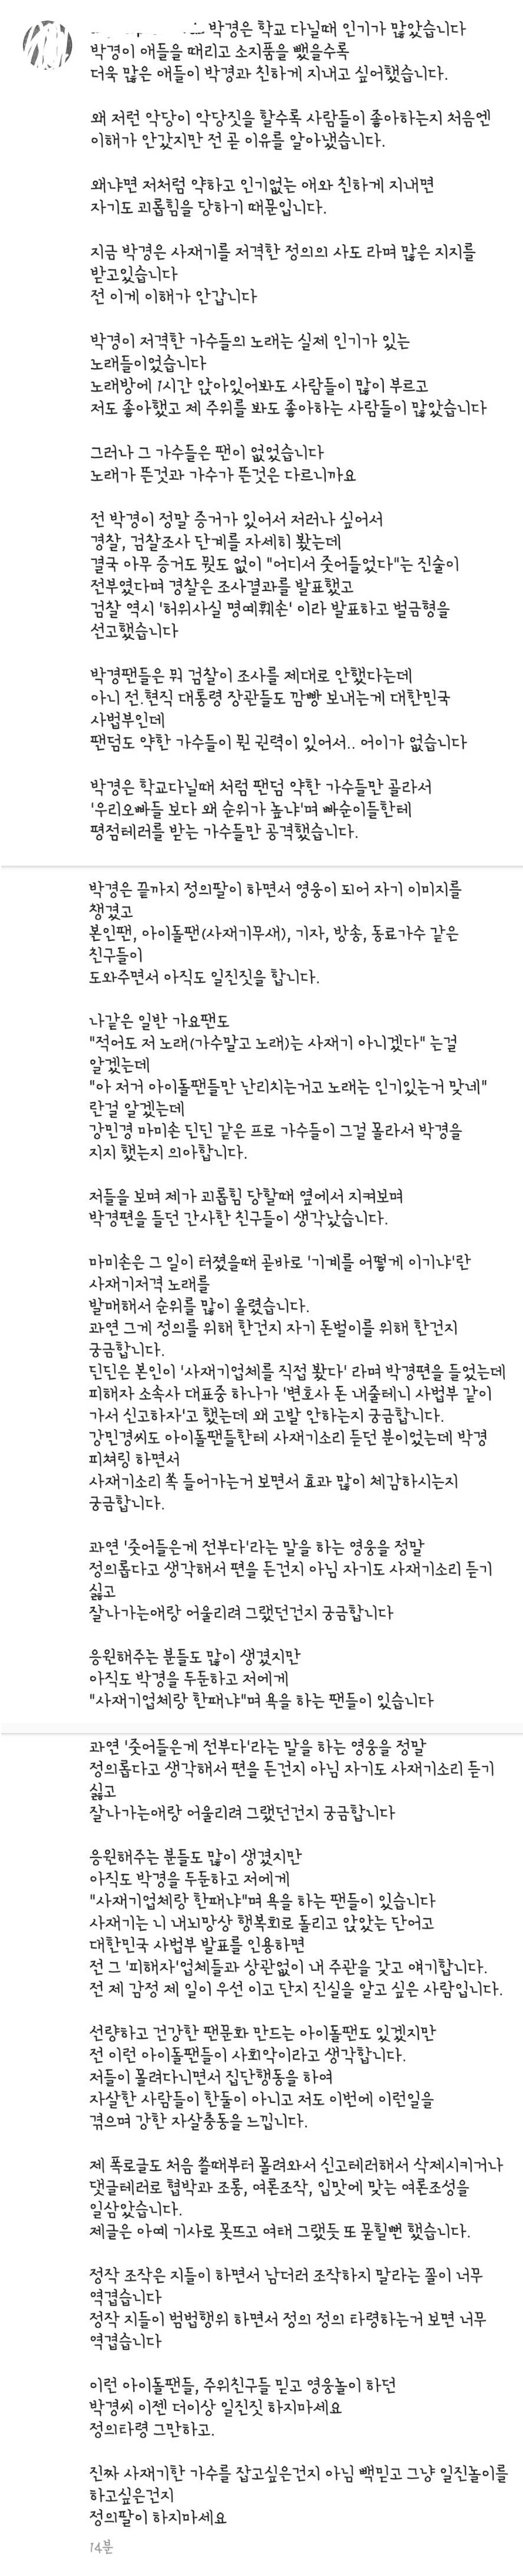 박경은 학교 다닐때 인기가 많았습니다
박경이 애들을 때리고 소지품을 뺐을수록
더욱 많은 애들이 박경과 친하게 지내고 싶어했습니다.
왜 저런 악당이 악당짓을 할수록 사람들이 좋아하는지 처음엔
이해가 안갔지만 전 곧 이유를 알아냈습니다.
왜냐면 저처럼 약하고 인기없는 애와 친하게 지내면
자기도 괴롭힘을 당하기 때문입니다.
지금 박경은 사재기를 저격한 정의의 사도 라며 많은 지지를
받고있습니다
전 이게 이해가 안갑니다
박경이 저격한 가수들의 노래는 실제 인기가 있는
노래들이었습니다
노래방에 1시간 앉아있어봐도 사람들이 많이 부르고
저도 좋아했고 제 주위를 봐도 좋아하는 사람들이 많았습니다
그러나 그 가수들은 팬이 없었습니다
노래가 뜬것과 가수가 뜬것은 다르니까요
전 박경이 정말 증거가 있어서 저러나 싶어서
경찰, 검찰조사 단계를 자세히 봤는데
결국 아무 증거도 뭣도 없이 "어디서 줏어들었다"는 진술이
전부였다며 경찰은 조사결과를 발표했고
검찰 역시 '허위사실 명예훼손' 이라 발표하고 벌금형을
선고했습니다
박경팬들은 뭐 검찰이 조사를 제대로 안했다는데
아니 전.현직 대통령 장관들도 깜빵 보내는게 대한민국
사법부인데
팬덤도 약한 가수들이 뭔 권력이 있어서.. 어이가 없습니다
박경은 학교다닐때 처럼 팬덤 약한 가수들만 골라서
'우리오빠들 보다 왜 순위가 높냐'며 빠순이들한테
평점테러를 받는 가수들만 공격했습니다.
박경은 끝까지 정의팔이 하면서 영웅이 되어 자기 이미지를
챙겼고
본인팬, 아이돌팬(사재기무새), 기자, 방송, 동료가수 같은
친구들이
도와주면서 아직도 일진짓을 합니다.
나같은 일반 가요팬도
"적어도 저 노래(가수말고 노래)는 사재기 아니겠다" 는걸
알겠는데
"아 저거 아이돌팬들만 난리치는거고 노래는 인기있는거 맞네"
란걸 알겠는데
강민경 마미손 딘딘 같은 프로 가수들이 그걸 몰라서 박경을
지지 했는지 의아합니다.
저들을 보며 제가 괴롭힘 당할때 옆에서 지켜보며
박경편을 들던 간사한 친구들이 생각났습니다.
마미손은 그 일이 터졌을때 곧바로 '기계를 어떻게 이기냐'란
사재기저격 노래를
발매해서 순위를 많이 올렸습니다.
과연 그게 정의를 위해 한건지 자기 돈벌이를 위해 한건지
궁금합니다.
딘딘은 본인이 '사재기업체를 직접 봤다' 라며 박경편을 들었는데
피해자 소속사 대표중 하나가 '변호사 돈 내줄테니 사법부 같이
가서 신고하자'고 했는데 왜 고발 안하는지 궁금합니다.
강민경씨도 아이돌팬들한테 사재기소리 듣던 분이었는데 박경
피쳐링 하면서
사재기소리 쏙 들어가는거 보면서 효과 많이 체감하시는지
궁금합니다.
과연 '줏어들은게 전부다'라는 말을 하는 영웅을 정말
정의롭다고 생각해서 편을 든건지 아님 자기도 사재기소리 듣기
싫고
잘나가는애랑 어울리려 그랬던건지 궁금합니다
응원해주는 분들도 많이 생겼지만
아직도 박경을 두둔하고 저에게
"사재기업체랑 한패냐"며 욕을 하는 팬들이 있습니다
과연 '줏어들은게 전부다'라는 말을 하는 영웅을 정말
정의롭다고 생각해서 편을 든건지 아님 자기도 사재기소리 듣기
싫고
잘나가는애랑 어울리려 그랬던건지 궁금합니다
응원해주는 분들도 많이 생겼지만
아직도 박경을 두둔하고 저에게
"사재기업체랑 한패냐"며 욕을 하는 팬들이 있습니다
사재기는 니 내뇌망상 행복회로 돌리고 앉았는 단어고
대한민국 사법부 발표를 인용하면
전 그 '피해자'업체들과 상관없이 내 주관을 갖고 얘기합니다.
전 제 감정 제 일이 우선 이고 단지 진실을 알고 싶은 사람입니다.
선량하고 건강한 팬문화 만드는 아이돌팬도 있겠지만
전 이런 아이돌팬들이 사회악이라고 생각합니다.
저들이 몰려다니면서 집단행동을 하여
자살한 사람들이 한둘이 아니고 저도 이번에 이런일을
겪으며 강한 자살충동을 느낍니다.
제 폭로글도 처음 쓸때부터 몰려와서 신고테러해서 삭제시키거나
댓글테러로 협박과 조롱, 여론조작, 입맛에 맞는 여론조성을
일삼았습니다.
제글은 아예 기사로 못뜨고 여태 그랬듯 또 묻힐뻔 했습니다.
정작 조작은 지들이 하면서 남더러 조작하지 말라는 꼴이 너무
역겹습니다
정작 지들이 범법행위 하면서 정의 정의 타령하는거 보면 너무
역겹습니다
이런 아이돌팬들, 주위친구들 믿고 영웅놀이 하던
박경씨 이젠 더이상 일진짓 하지마세요
정의타령 그만하고.
진짜 사재기한 가수를 잡고싶은건지 아님 빽믿고 그냥 일진놀이를
하고싶은건지
정의팔이 하지마세요
14분